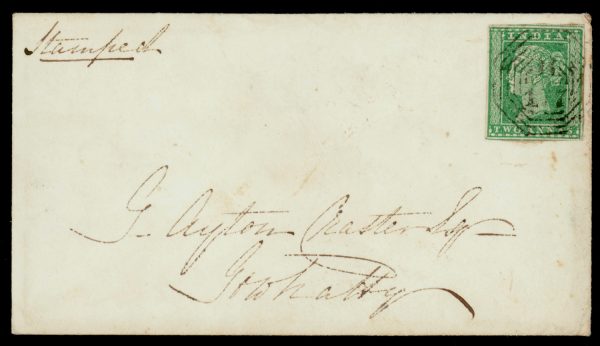 Stamped
INDIA
TWO ANNAS
G. Ayton Craster Esq
Gowhatty